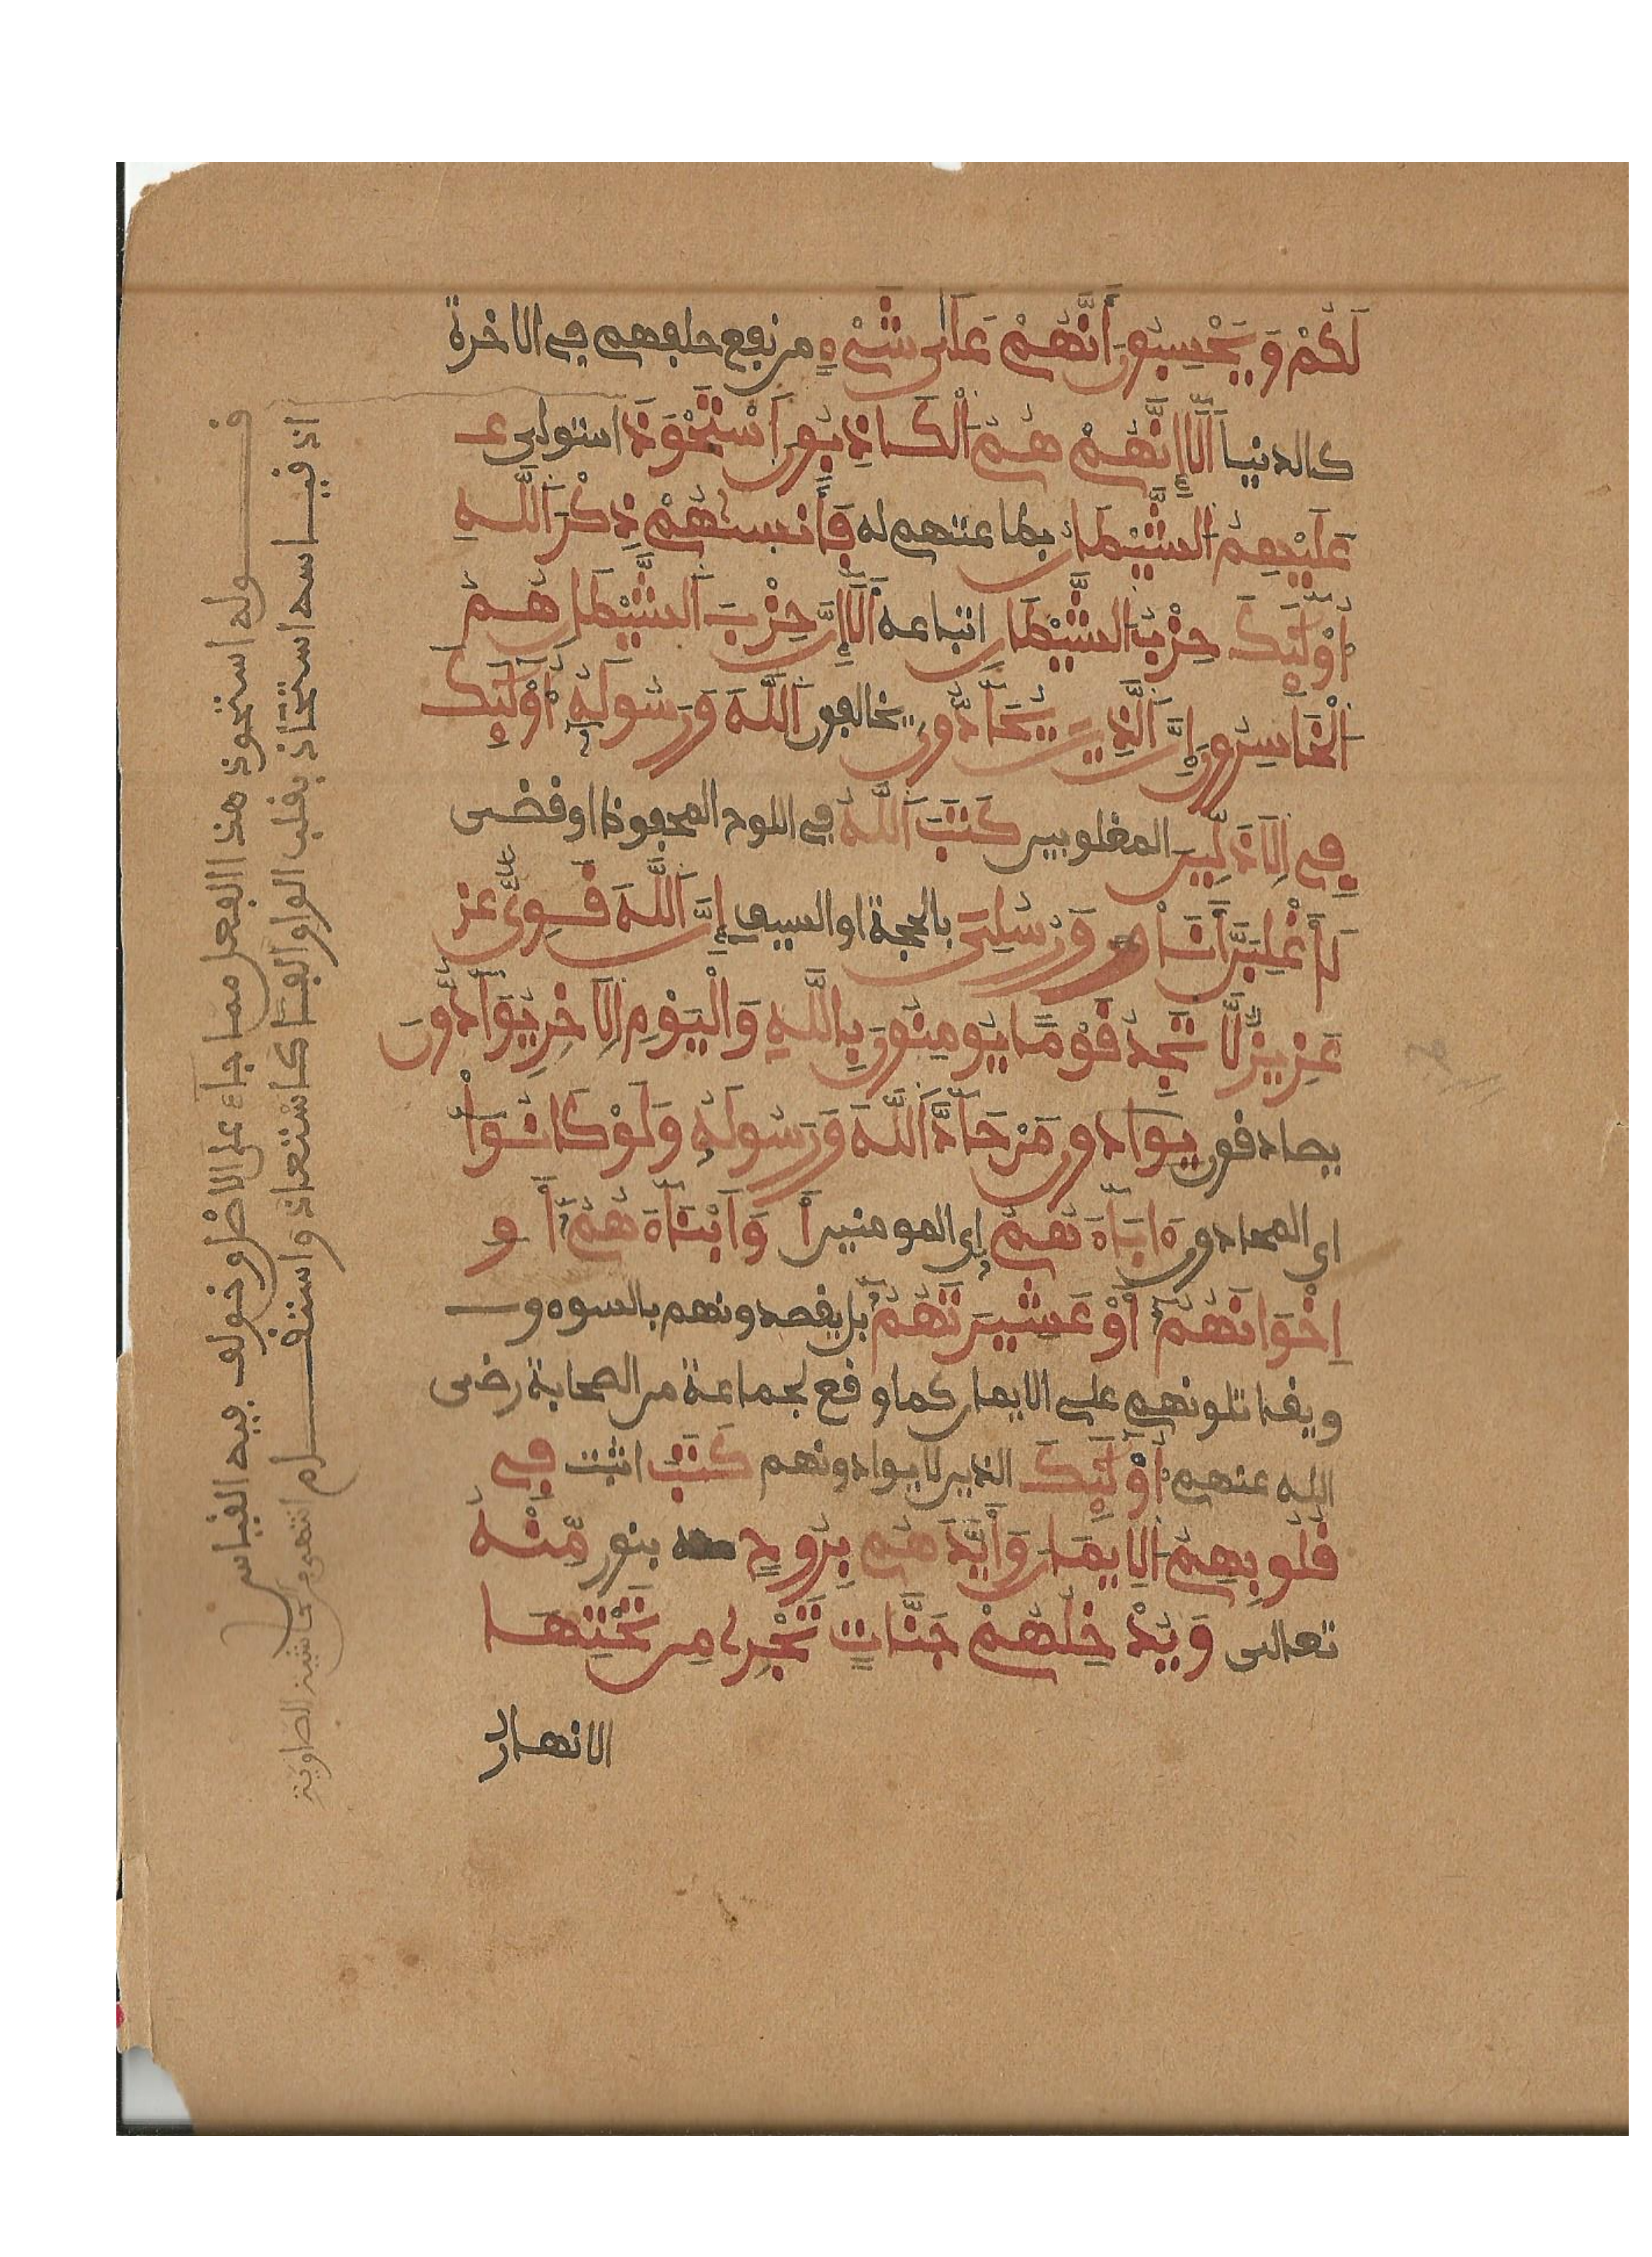 لَكُمْ وَيَحْسِبُونَ أَنَّهُمْ عَلَى شَيْءٍ من نفع حلفهم في الاخرة
كالدنيا أَلَا إِنَّهُمْ هُمُ الْكَاذِبُونَ اَسْتَحْوَذَ استولى عـ
عَلَيْهِمُ الشَّيْطَانُ بطاعتهم له فَأَنسَيٰهُمْ ذِكْرَ اللَّهِ
أُوْلَئِكَ حِزْبُ الشَّيْطَانِ اتباعه أَلَا إِنَّ حِزْبَ الشَّيْطَانِ هُمُ
الْخَاسِرُونَ إِنَّ الَّذِينَ يُحَادُّونَ يخالفون اللَّهَ وَرَسُولَهُ أُوْلَئِكَ
فِي الْأَذَلِّينَ المغلوبين كَتَبَ اللَّهُ في اللوح المحفوظ او قضى
لَأَغْلِبَنَّ أَنَا وَرُسُلِيَ بالحجة او السيف إِنَّ اللَّهَ قَوِيٌّ عز
عَزِيزٌ لَّا تَجِدُ قَوْمًا يُومِنُونَ بِاللَّهِ وَالْيَوْمِ الْأَخِرِ يُوَادُّونَ
يصادقون يوادون مَنْ حَادَّ اللَّهَ وَرَسُولَهُ وَلَوْ كَانُوا
اي المحادون ءَابَاءَهُمُ اي المومنين أَوَ ابْنَاءَهُمُ أَو
اِخْوَانَهُمُ أَوْ عَشِيرَتَهُمُ بل يقصدونهم بالسوء و
ويقاتلونهم على الايمان كما وقع لجماعة من الصحابة رضى
الله عنهم أُوْلَئِكَ الذين لا يوادونهم كَتَبَ اثبت فِي
قُلُوبِهِمُ الْإِيمَانَ وَأَيَّدَهُم بِرُوحٍ بنور مِّنْهُ
تعالى وَيُدْخِلُهُمْ جَنَّاتٍ تَجْرِي مِن تَحْتِهَا
الانهار
قوله استحوذ هذا الفعل مما جاء على الاصل وخولف فيه القياس
اذ قياسه استحاذ بقلب الواو الفا كاستعاذ واستقام انتهى من حاشية الصاوي